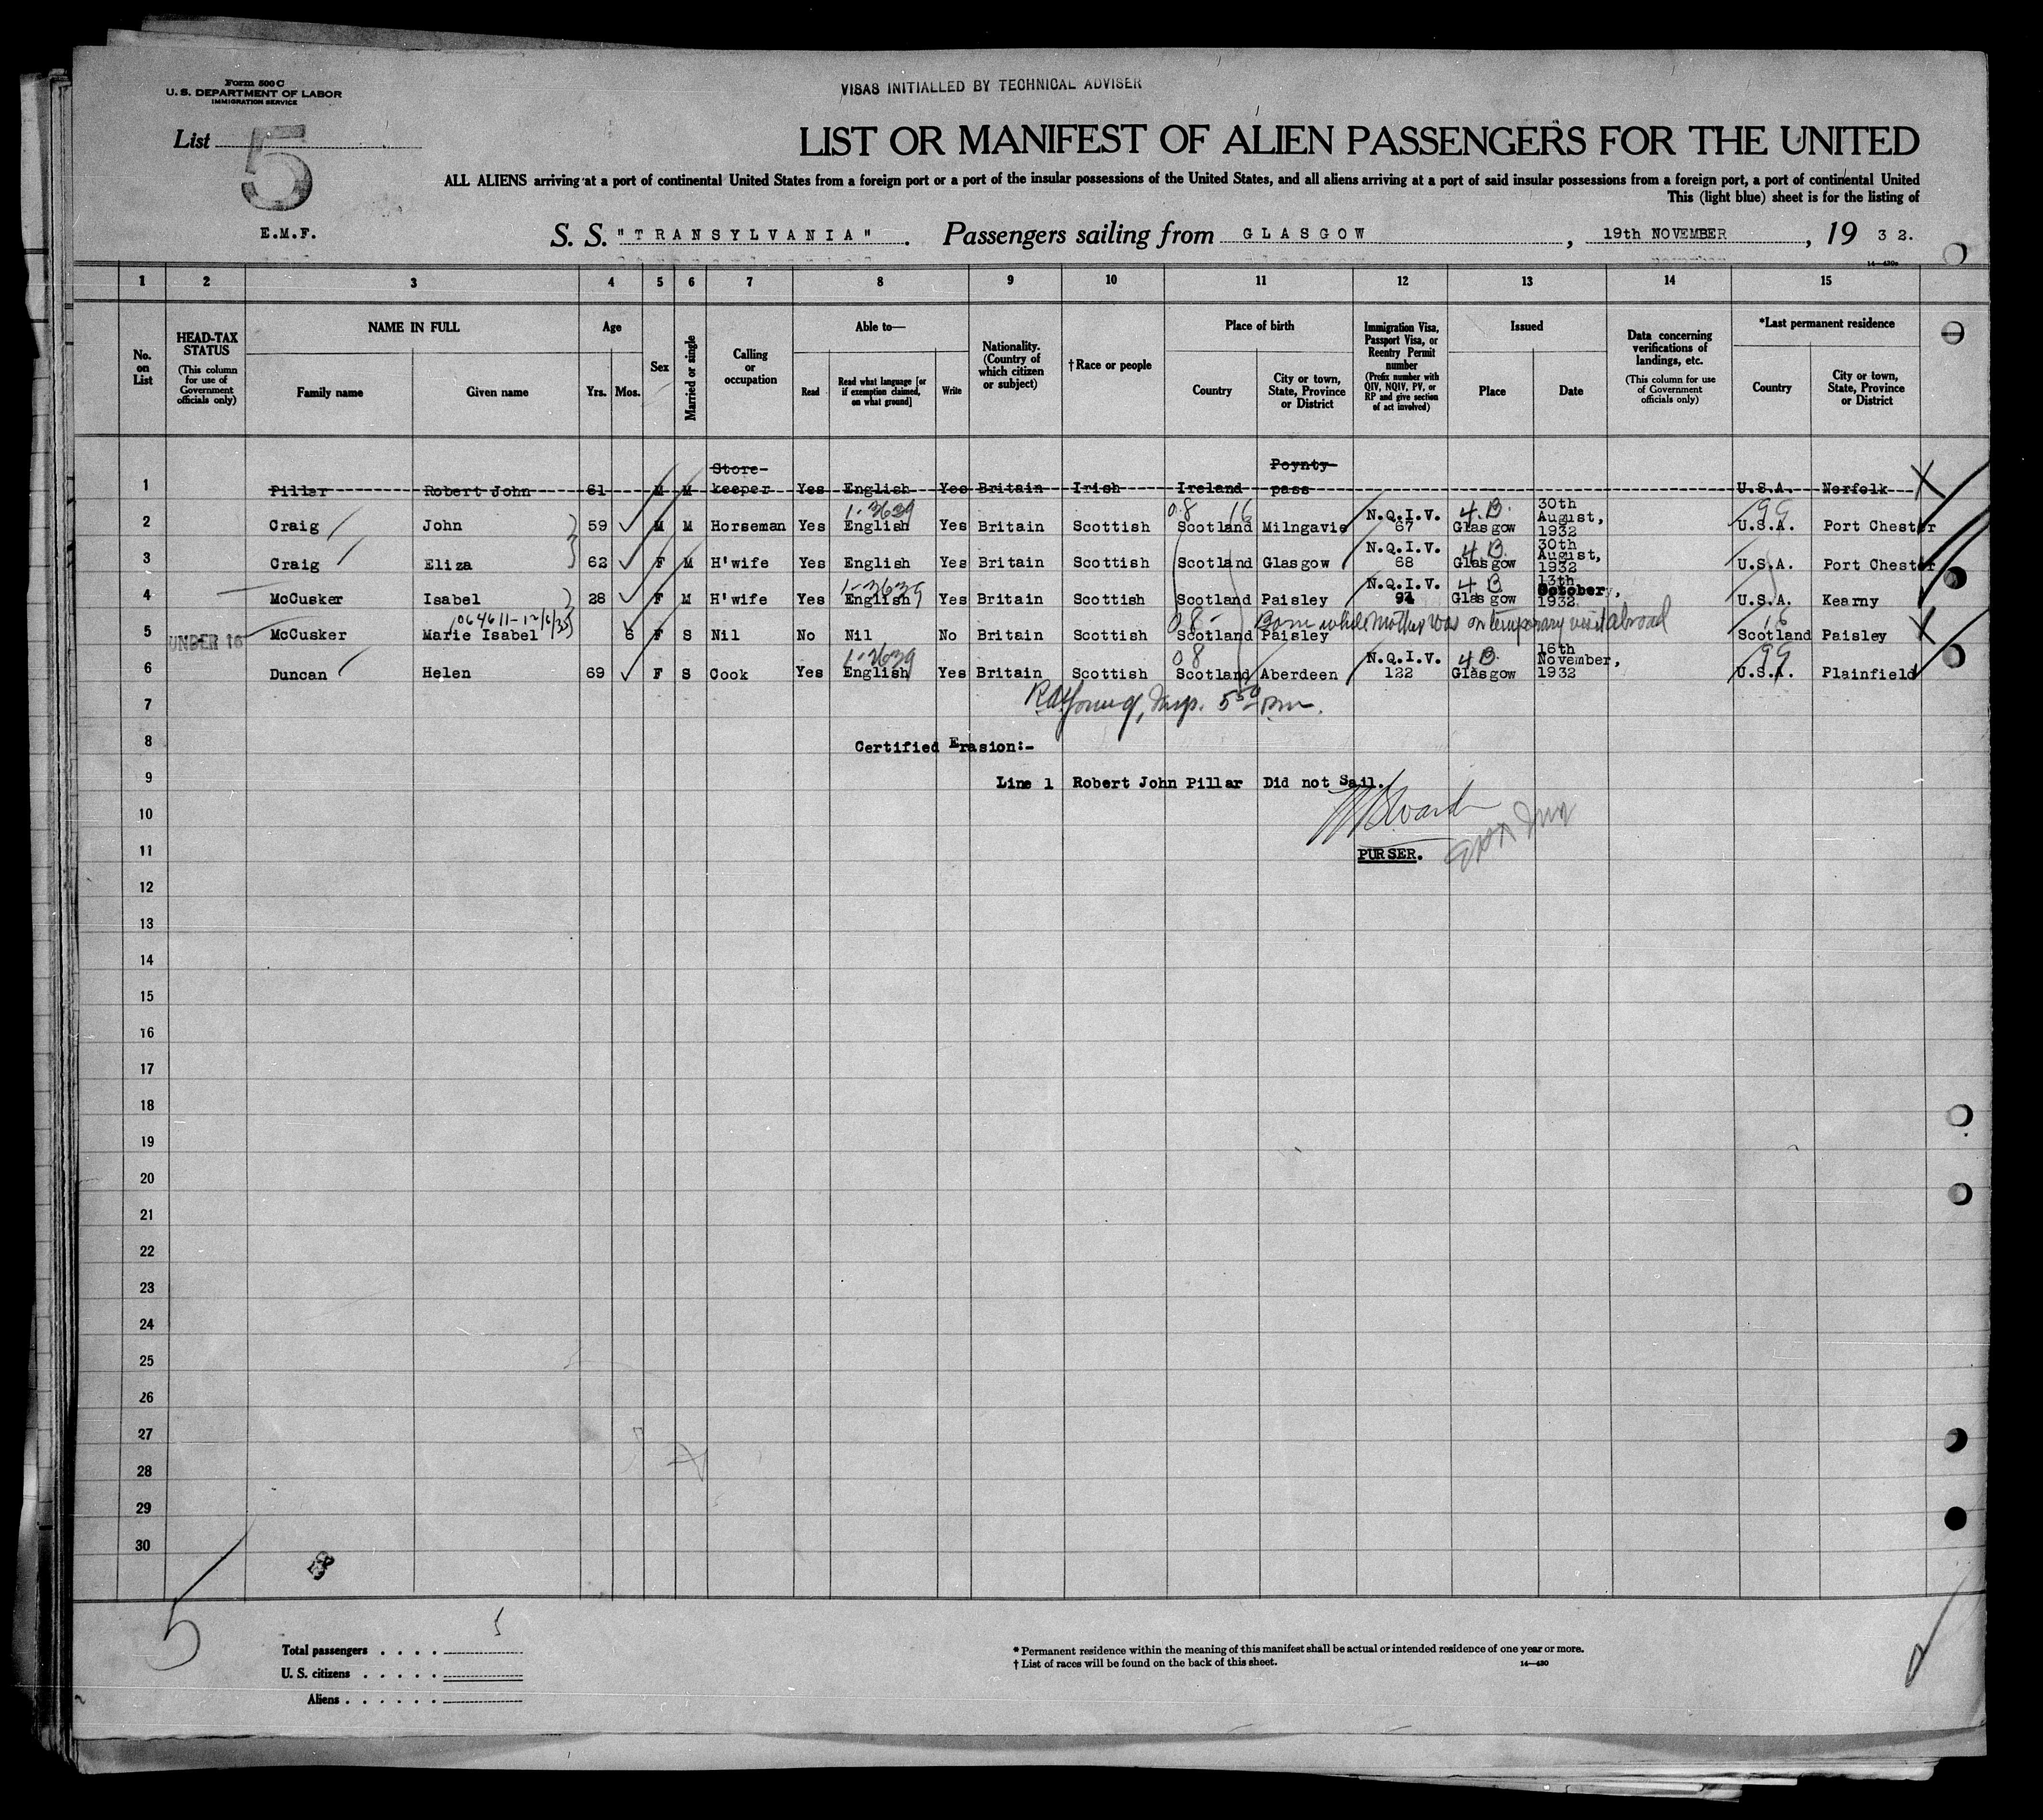 Form 500 C
U. S. DEPARTMENT OF LABOR
IMMIGRATION SERVICE
VISAS INITIALLED BY TECHNICAL ADVISER
List 5
LIST OR MANIFEST OF ALIEN PASSENGERS FOR THE UNITED
ALL ALIENS arriving at a port of continental United States from a foreign port or a port of the insular possessions of the United States, and all aliens arriving at a port of said insular possessions from a foreign port, a port of continental United
This (light blue) sheet is for the listing of
E.M.F.
S. S. "TRANSYLVANIA". Passengers sailing from GLASGOW, 19th NOVEMBER, 19 32.
14—430a
1 2 3 4 5 6 7 8 9 10 11 12 13 14 15
No. on List
HEAD-TAX STATUS
(This column for use of Government officials only)
NAME IN FULL
Family name Given name
Age
Yrs. Mos.
Sex
Married or single
Calling or occupation
Able to—
Read
Read what language [or if exemption claimed, on what ground]
Write
Nationality. (Country of which citizen or subject)
†Race or people
Place of birth
Country
City or town, State, Province or District
Immigration Visa, Passport Visa, or Reentry Permit number
(Prefix number with QIV, NQIV, PV, or RP and give section of act involved)
Issued
Place Date
Data concerning verifications of landings, etc.
(This column for use of Government officials only)
*Last permanent residence
Country
City or town, State, Province or District
1 Pillar Robert John 61 M M Store-keeper Yes English Yes Britain Irish Ireland Poynty-pass U.S.A. Norfolk X
1-3639 08 16 4.B. 99
2 Craig John 59 M M Horseman Yes English Yes Britain Scottish Scotland Milngavie N.Q.I.V. 67 Glasgow 30th August, 1932 U.S.A. Port Chester
4 B.
3 Craig Eliza 62 F M H'wife Yes English Yes Britain Scottish Scotland Glasgow N.Q.I.V. 68 Glasgow 30th August, 1932 U.S.A. Port Chester
1-3639 4 B
4 McCusker Isabel 28 F M H'wife Yes English Yes Britain Scottish Scotland Paisley N.Q.I.V. Glasgow 13th October, 1932 U.S.A. Kearny
08- Born while mother was on temporary visit abroad 16
UNDER 16
5 McCusker Marie Isabel 6 F S Nil No Nil No Britain Scottish Scotland Paisley Scotland Paisley X
1-3639 08 4 B. 99
6 Duncan Helen 69 F S Cook Yes English Yes Britain Scottish Scotland Aberdeen N.Q.I.V. 122 Glasgow 16th November, 1932 U.S.A. Plainfield
7
8 Certified Erasion:-
9 Line 1 Robert John Pillar Did not Sail.
10
11 PURSER.
12
13
14
15
16
17
18
19
20
21
22
23
24
25
26
27
28
29
30
5
Total passengers . . . . 5
U. S. citizens . . . . .
Aliens . . . . . .
* Permanent residence within the meaning of this manifest shall be actual or intended residence of one year or more.
† List of races will be found on the back of this sheet.
14—430